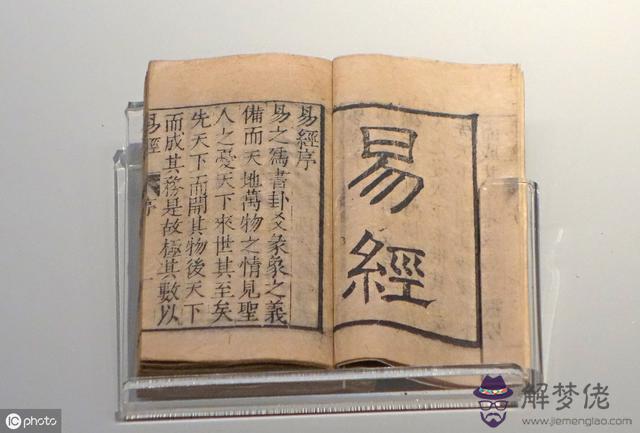 易經
易經序
易之爲書卦爻彖象之義
備而天地萬物之情見聖
人之憂天下來世其至矣
先天下而開其物後天下
而成其務是故極其數以
易經 序
iC photo
解梦佬
www.jiemenglao.com